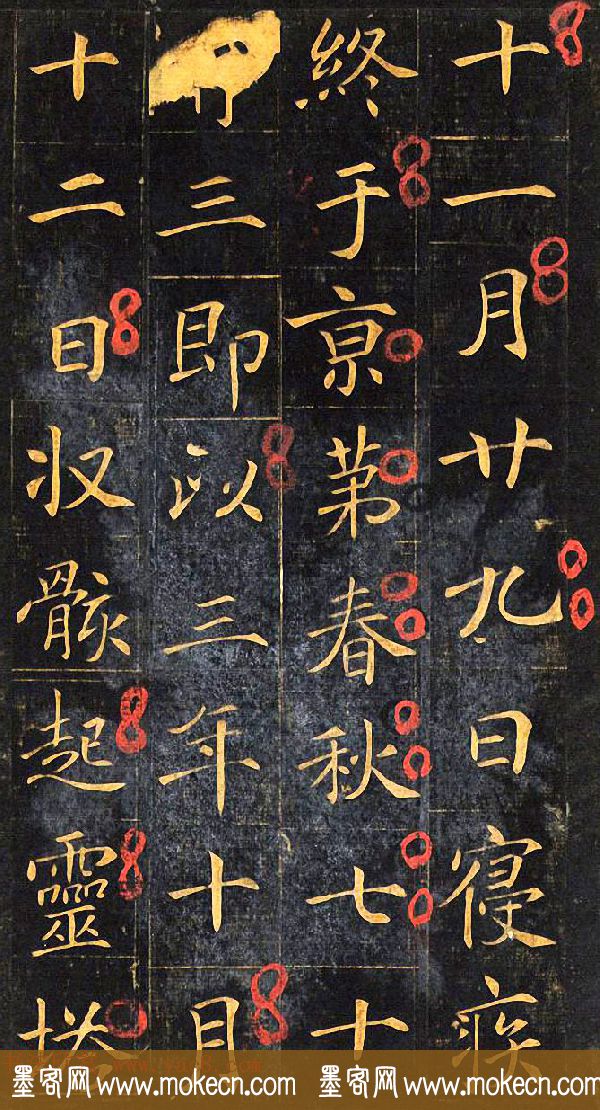 十一月廿九日寝疾
終于亰苐春秋七十
三即以三年十月
十二日収骸起靈塔
墨客网 www.mokecn.com 墨客网 www.mokecn.com